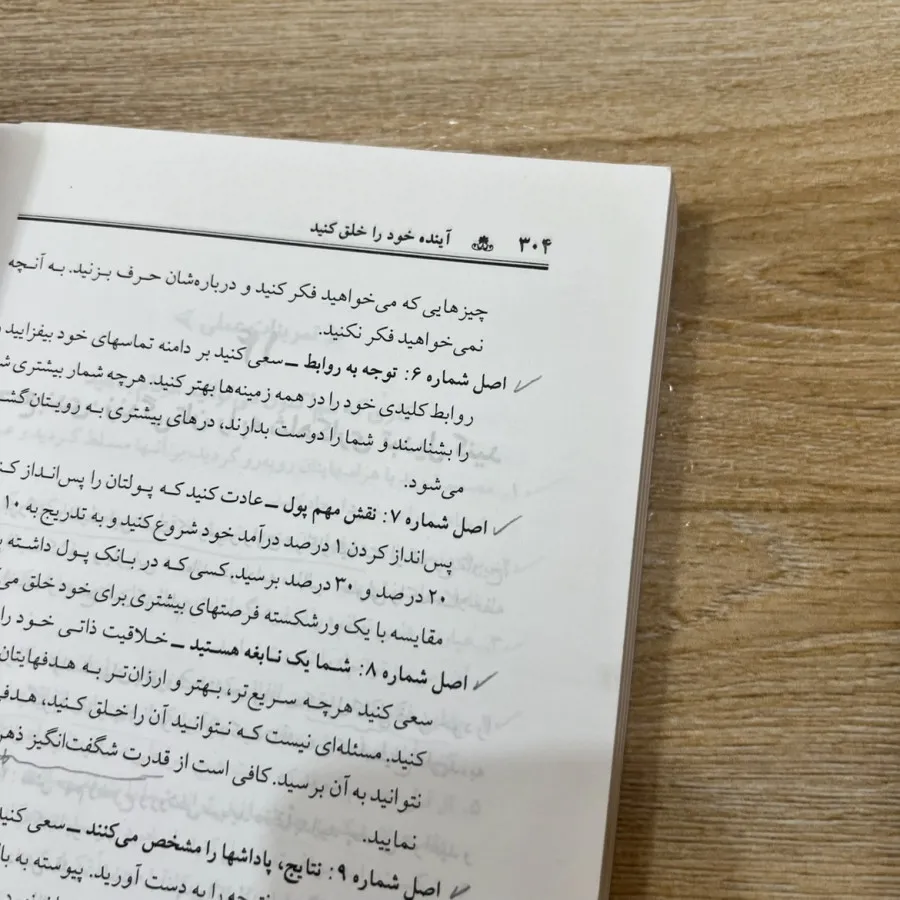 ۳۰۴ آینده خود را خلق کنید
چیزهایی که می‌خواهید فکر کنید و درباره‌شان حرف بزنید. به آنچه
نمی‌خواهید فکر نکنید.
✓ اصل شماره ۶: توجه به روابط ــ سعی کنید بر دامنه تماسهای خود بیفزایید
روابط کلیدی خود را در همه زمینه‌ها بهتر کنید. هرچه شمار بیشتری
را بشناسند و شما را دوست بدارند، درهای بیشتری به رویتان
می‌شود.
✓ اصل شماره ۷: نقش مهم پول ــ عادت کنید که پولتان را پس‌انداز
پس‌انداز کردن ۱ درصد درآمد خود شروع کنید و به تدریج به ۱۰
۲۰ درصد و ۳۰ درصد برسید. کسی که در بانک پول داشته
مقایسه با یک ورشکسته فرصتهای بیشتری برای خود خلق
✓ اصل شماره ۸: شما یک نابغه هستید ــ خلاقیت ذاتی خود را
سعی کنید هرچه سریع‌تر، بهتر و ارزان‌تر به هدفهایتان
کنید. مسئله‌ای نیست که نتوانید آن را خلق کنید،
نتوانید به آن برسید. کافی است از قدرت شگفت‌انگیز
نمایید.
✓ اصل شماره ۹: نتایج، پاداشها را مشخص می‌کنند ــ سعی کنید
را به دست آورید. پیوسته به